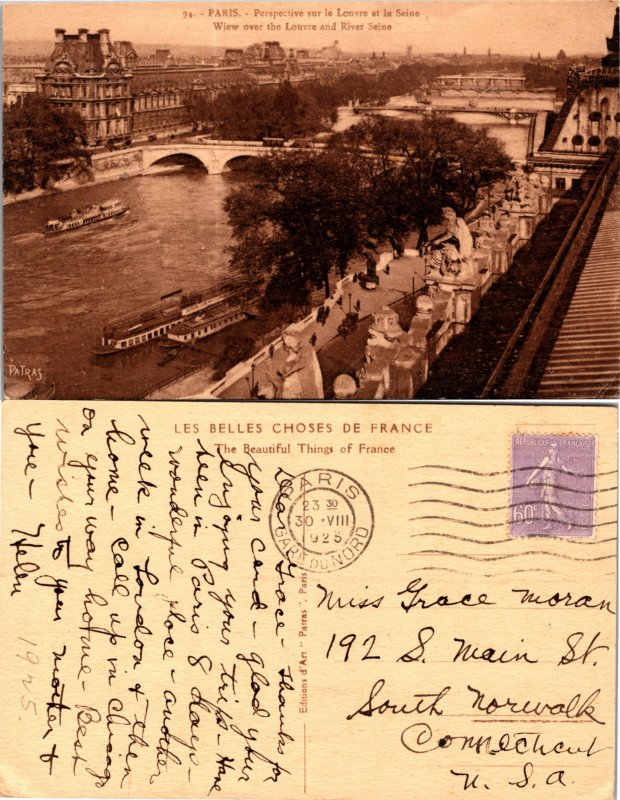 94. - PARIS. - Perspective sur le Louvre et la Seine
Wiew over the Louvre and River Seine
PATRAS
LES BELLES CHOSES DE FRANCE
The Beautiful Things of France
Dear Grace - Thanks for
your card - glad your
enjoying your trip - Have
been in Paris 8 days -
wonderful place - another
week in London & then
home - Call up in Chicago
on your way home - Best
wishes to your mother &
you - Helen
1925.
Editions d'Art "Patras", Paris
PARIS
23 30
30 · VIII
1925
GARE DU NORD
REPUBLIQUE FRANÇAISE
60c
Miss Grace Moran
192 S. Main St.
South Norwalk
Connecticut
U. S. A